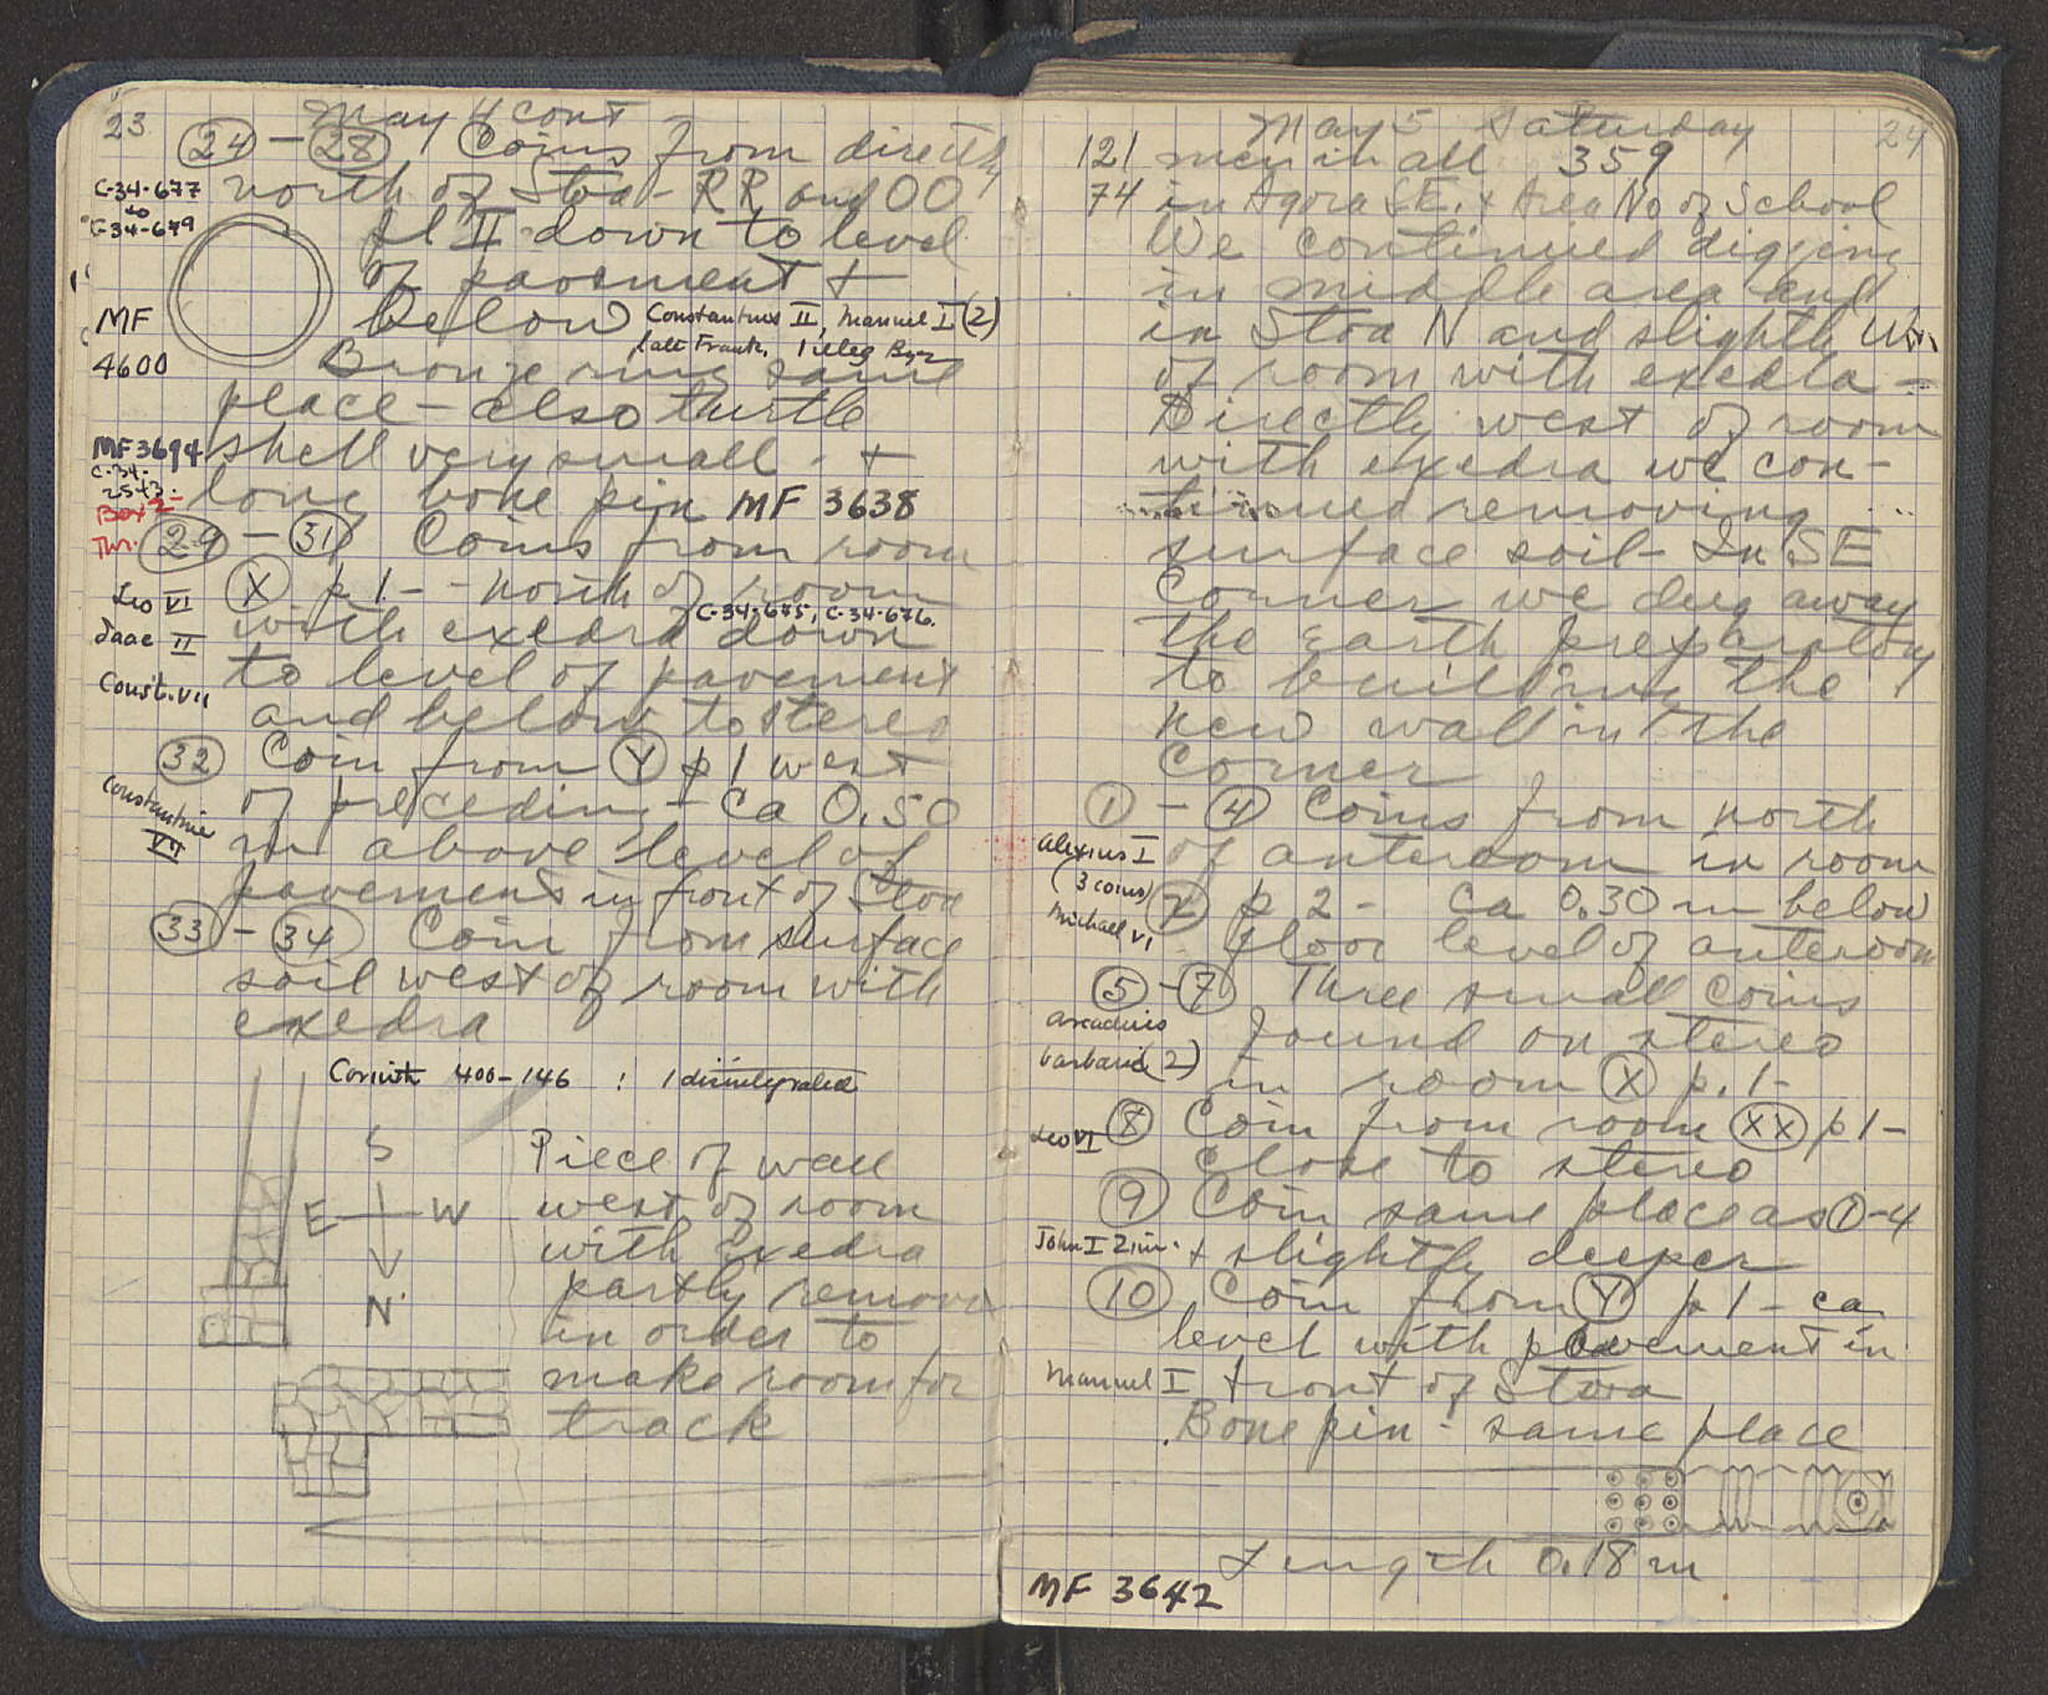 23 May 4 cont
24 - 28 Coins from directly
C-34-677 to C-34-679
north of Stoa - RR and OO
pl II down to level
of pavement +
below Constantinus II, Manuel I (2)
late Frank. 1 illeg Byz
MF 4600
Bronze ring same
place - also turtle
shell very small - +
MF 3694
C-34-2543.
long bone pin MF 3638
Box 2
29 - 31 Coins from room
X p 1 - north of room
C-34-675, C-34-676.
with exedra down
to level of pavement
and below to stereo
Leo VI
Isaac II
Const. VII
32 Coin from Y p 1 west
of preceding - ca 0.50
m above level of
pavement in front of Stoa
Constantine VII
33 - 34 Coin from surface
soil west of room with
exedra
Corinth 400-146 : 1 disintegrated
S
E W
N
Piece of wall
west of room
with exedra
partly removed
in order to
make room for
track
May 5 Saturday 24
121 men in all 359
74 in Agora SE. + Area No of School
We continued digging
in middle area and
in Stoa N and slightly W
of room with exedra -
Directly west of room
with exedra we con-
tinued removing
surface soil - In SE
Corner we dug away
the earth preparatory
to building the
new wall in the
Corner
1 - 4 Coins from north
of anteroom in room
Alexius I (3 coins)
Michael VI
p 2 - ca 0.30 m below
floor level of anteroom
5 - 7 Three small coins
found on stereo
in room X p. 1 -
Arcadius
barbaric (2)
8 Coin from room XX p 1 -
close to stereo
Leo VI
9 Coin same place as 1-4
+ slightly deeper
John I Zim.
10 Coin from Y p 1 - ca
level with pavement in
front of Stoa
Manuel I
Bone pin - same place
Length 0.18 m
MF 3642